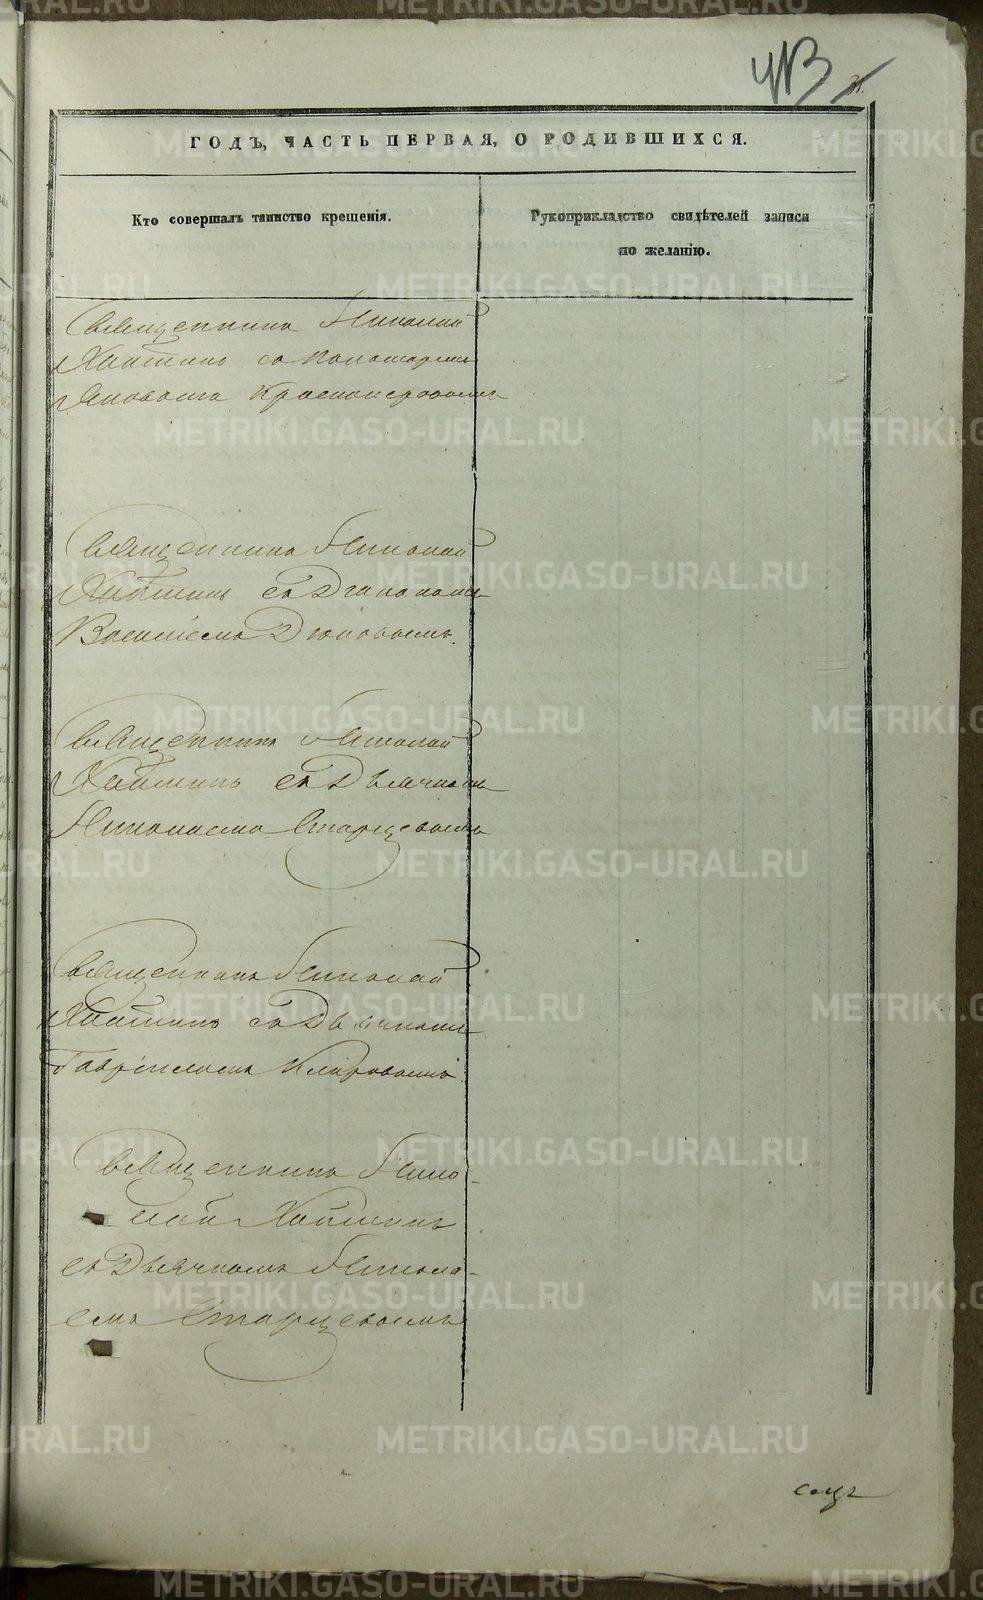 413
ГОДЪ, ЧАСТЬ ПЕРВАЯ, О РОДИВШИХСЯ.
Кто совершалъ таинство крещенія.
Рукоприкладство свидѣтелей записи
по желанію.
Священникъ Николай
Хаминъ съ пономаремъ
Яковомъ Красноперовымъ
Священникъ Николай
Хаминъ съ Діакономъ
Василіемъ Дюковымъ.
Священникъ Николай
Хаминъ съ Дьячкомъ
Николаемъ Старцевымъ
Священникъ Николай
Хаминъ съ Дьячкомъ
Гавріиломъ
Священникъ Нико-
лай Хаминъ
съ Дьячкомъ Никола-
емъ Старцевымъ
METRIKI.GASO-URAL.RU